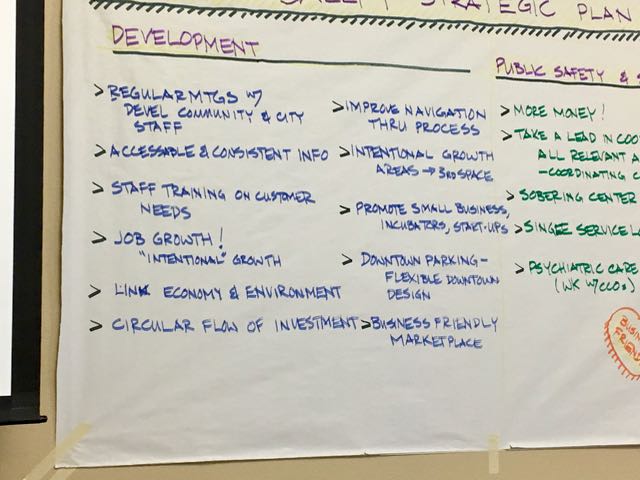 STRATEGIC PLAN
DEVELOPMENT
> REGULAR MTGS W/
DEVEL COMMUNITY & CITY
STAFF
> ACCESSABLE & CONSISTENT INFO
> STAFF TRAINING ON CUSTOMER
NEEDS
> JOB GROWTH!
"INTENTIONAL" GROWTH
> LINK ECONOMY & ENVIRONMENT
> CIRCULAR FLOW OF INVESTMENT
> IMPROVE NAVIGATION
THRU PROCESS
> INTENTIONAL GROWTH
AREAS → 3RD SPACE
> PROMOTE SMALL BUSINESS,
INCUBATORS, START-UPS
> DOWNTOWN PARKING -
FLEXIBLE DOWNTOWN
DESIGN
> BUSINESS FRIENDLY
MARKETPLACE
PUBLIC SAFETY &
> MORE MONEY!
> TAKE A LEAD IN COO
ALL RELEVANT A
- COORDINATING C
> SOBERING CENTER
> SINGLE SERVICE LO
> PSYCHIATRIC CARE
(WK W/CCOs)
BUSIN
FRIEN